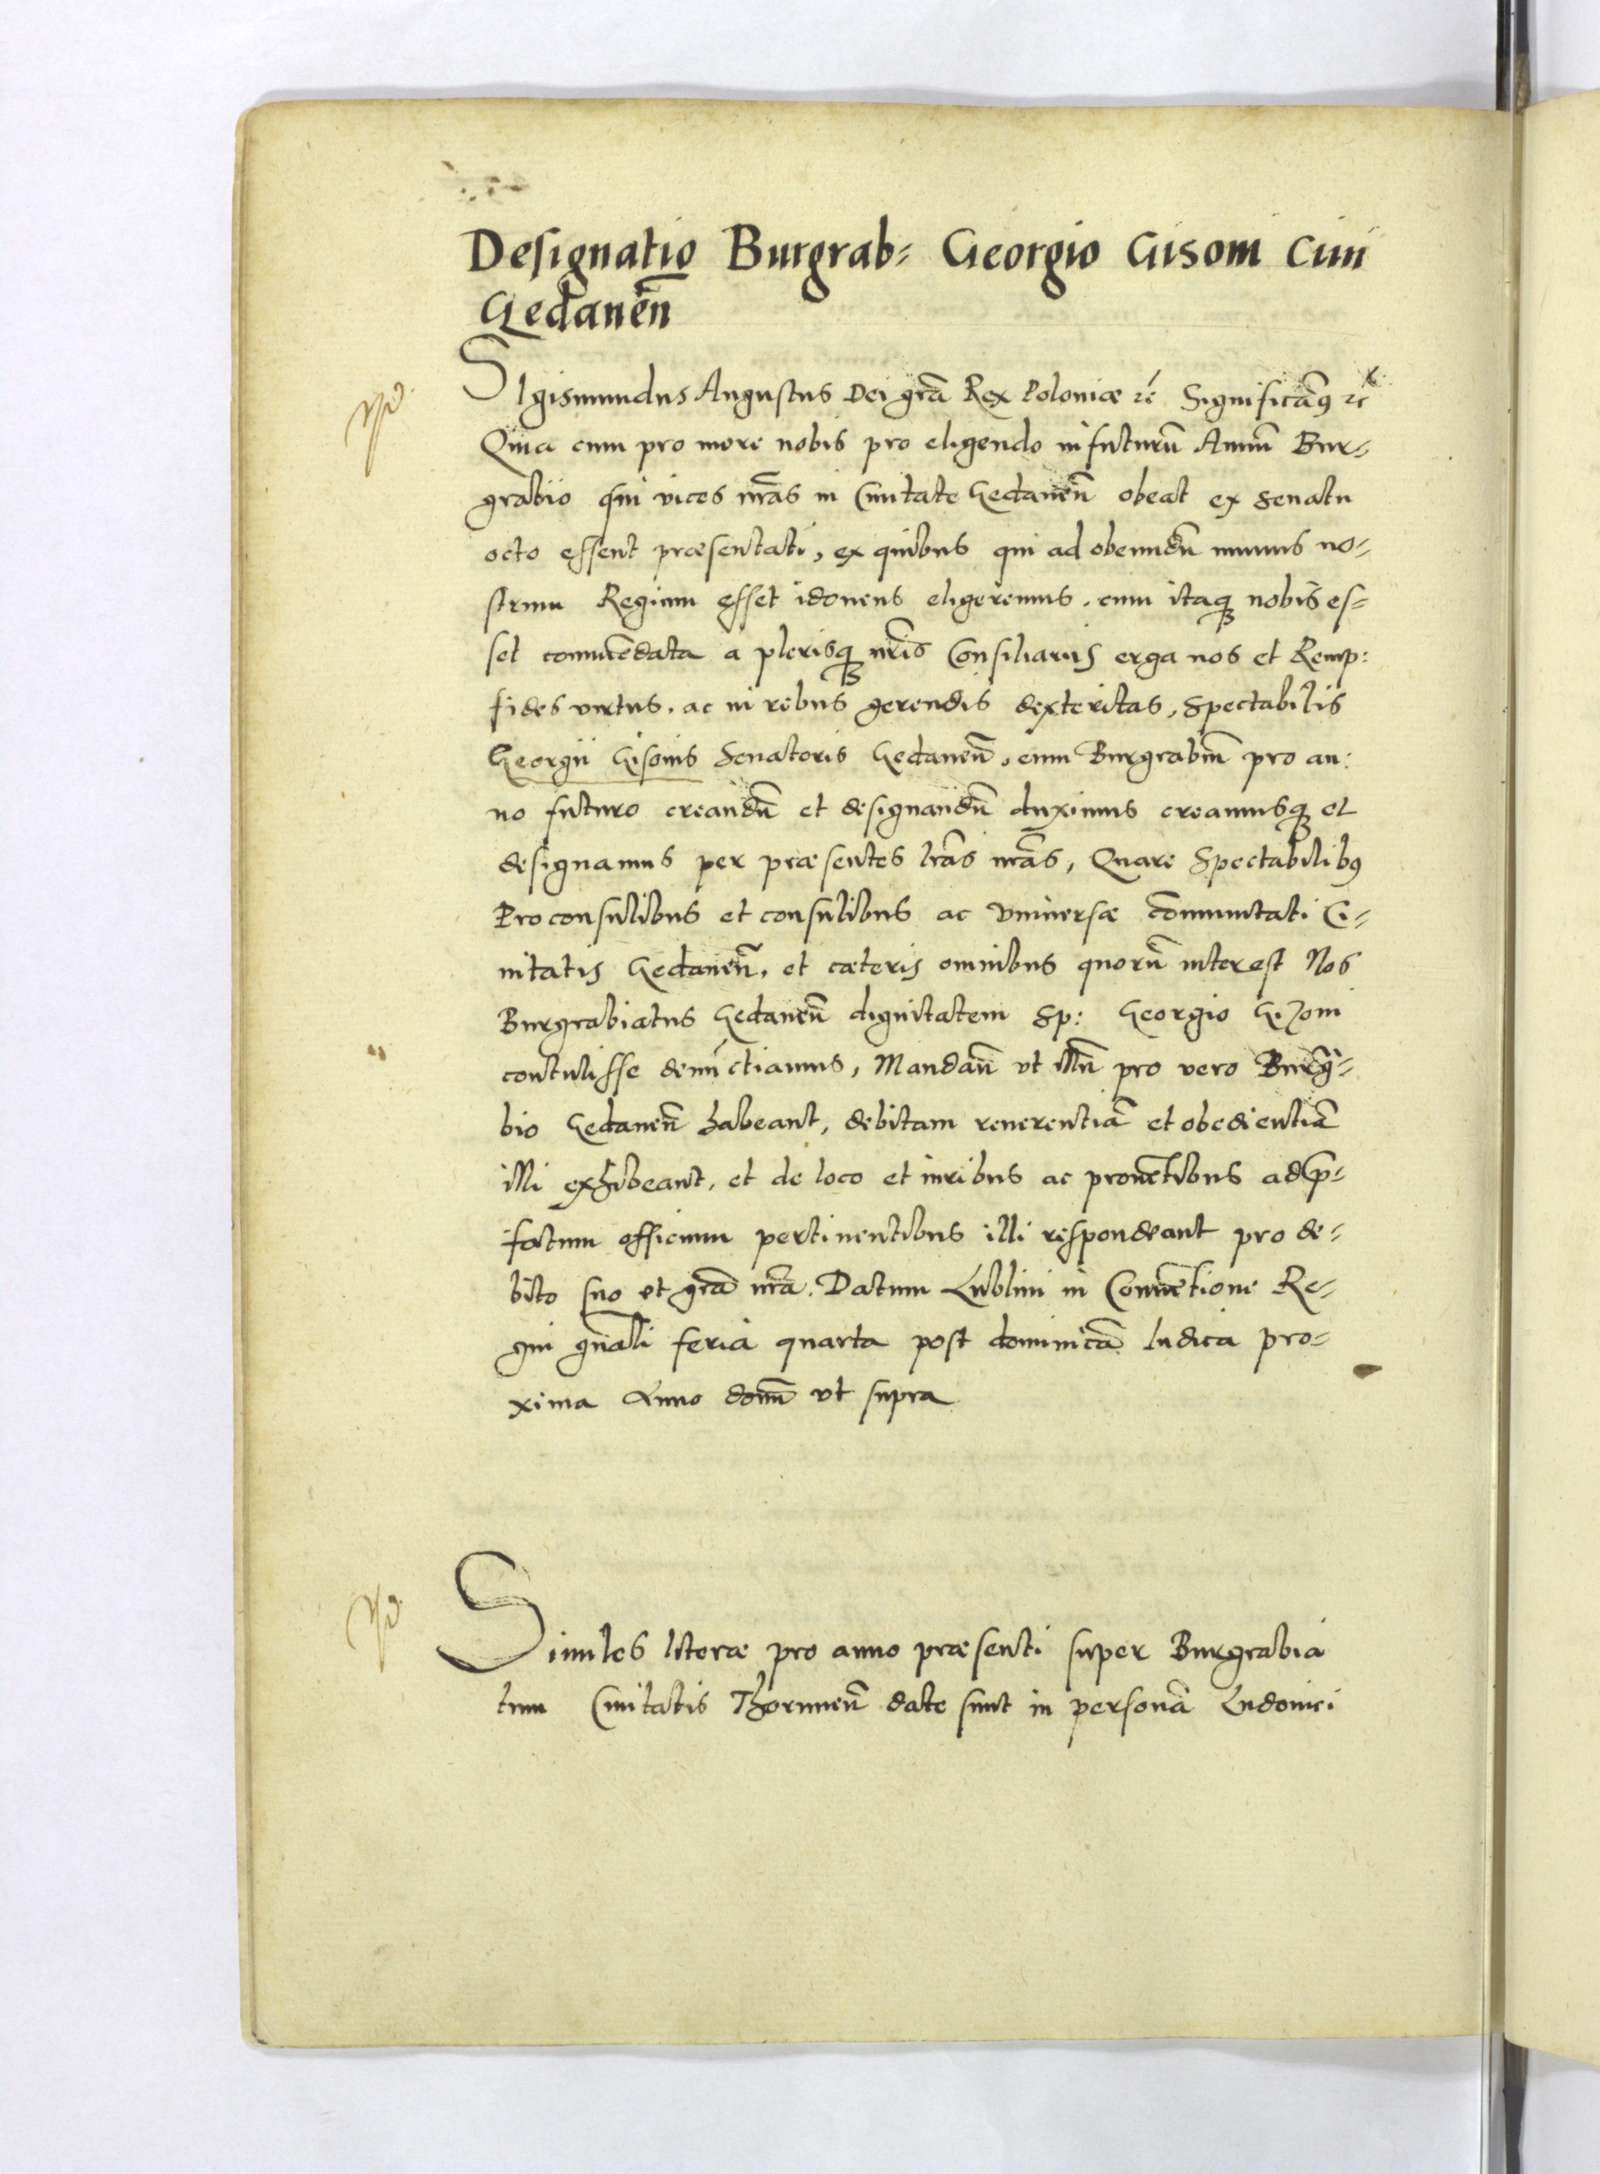 Designatio Burgrab= Georgio Gisoni Ciui
Gedaneñ
SIgismundus Augustus Dei grã Rex Poloniæ rc̃ Significãꝰ rc̃
Quia cum pro more nobis pro eligendo in futurũ Annũ Bur-
grabio qui vices nrãs in Ciuitate Gedaneñ obeat ex senatu
octo essent præsentati, ex quibus qui ad obeundũ munus no-
strum Regium esset idoneus eligeremus. cum itaqꝫ nobis es-
set commẽdata a plerisqꝫ nrĩs Consiliarijs erga nos et Remp:
fides virtus. ac in rebus gerendis dexteritas, Spectabilis
Georgii Gisonis Senatoris Gedaneñ, eum Burgrabiũ pro an:
no futuro creandũ et designandũ duximus creamusqꝫ et
designamus per præsentes lrãs nrãs, Quare Spectabilibꝰ
Proconsulibus et consulibus ac vniuersæ cõmunitati Ci-
uitatis Gedaneñ, et cæteris omnibus quorũ interest Nos
Burgrabiatus Gedaneñ dignitatem Sp: Georgio Gizoni
contulisse denũctiamus, Mandañ vt illũ pro vero Burgrã-
bio Gedaneñ habeant, debitam reuerentiã et obedientiã
illi exhibeant, et de loco et iuribus ac prouẽtibus ad p̃-
fatum officium pertinentibus illi respondeant pro de-
bito suo et grã nrã. Datum Lublini in Conuẽtione Re-
gni gñali feria quarta post dominicã Iudica pro-
xima Anno domĩ vt supra
Similes literæ pro anno præsenti super Burgrabia
tum Ciuitatis Thoruneñ date sunt in personã Ludouici